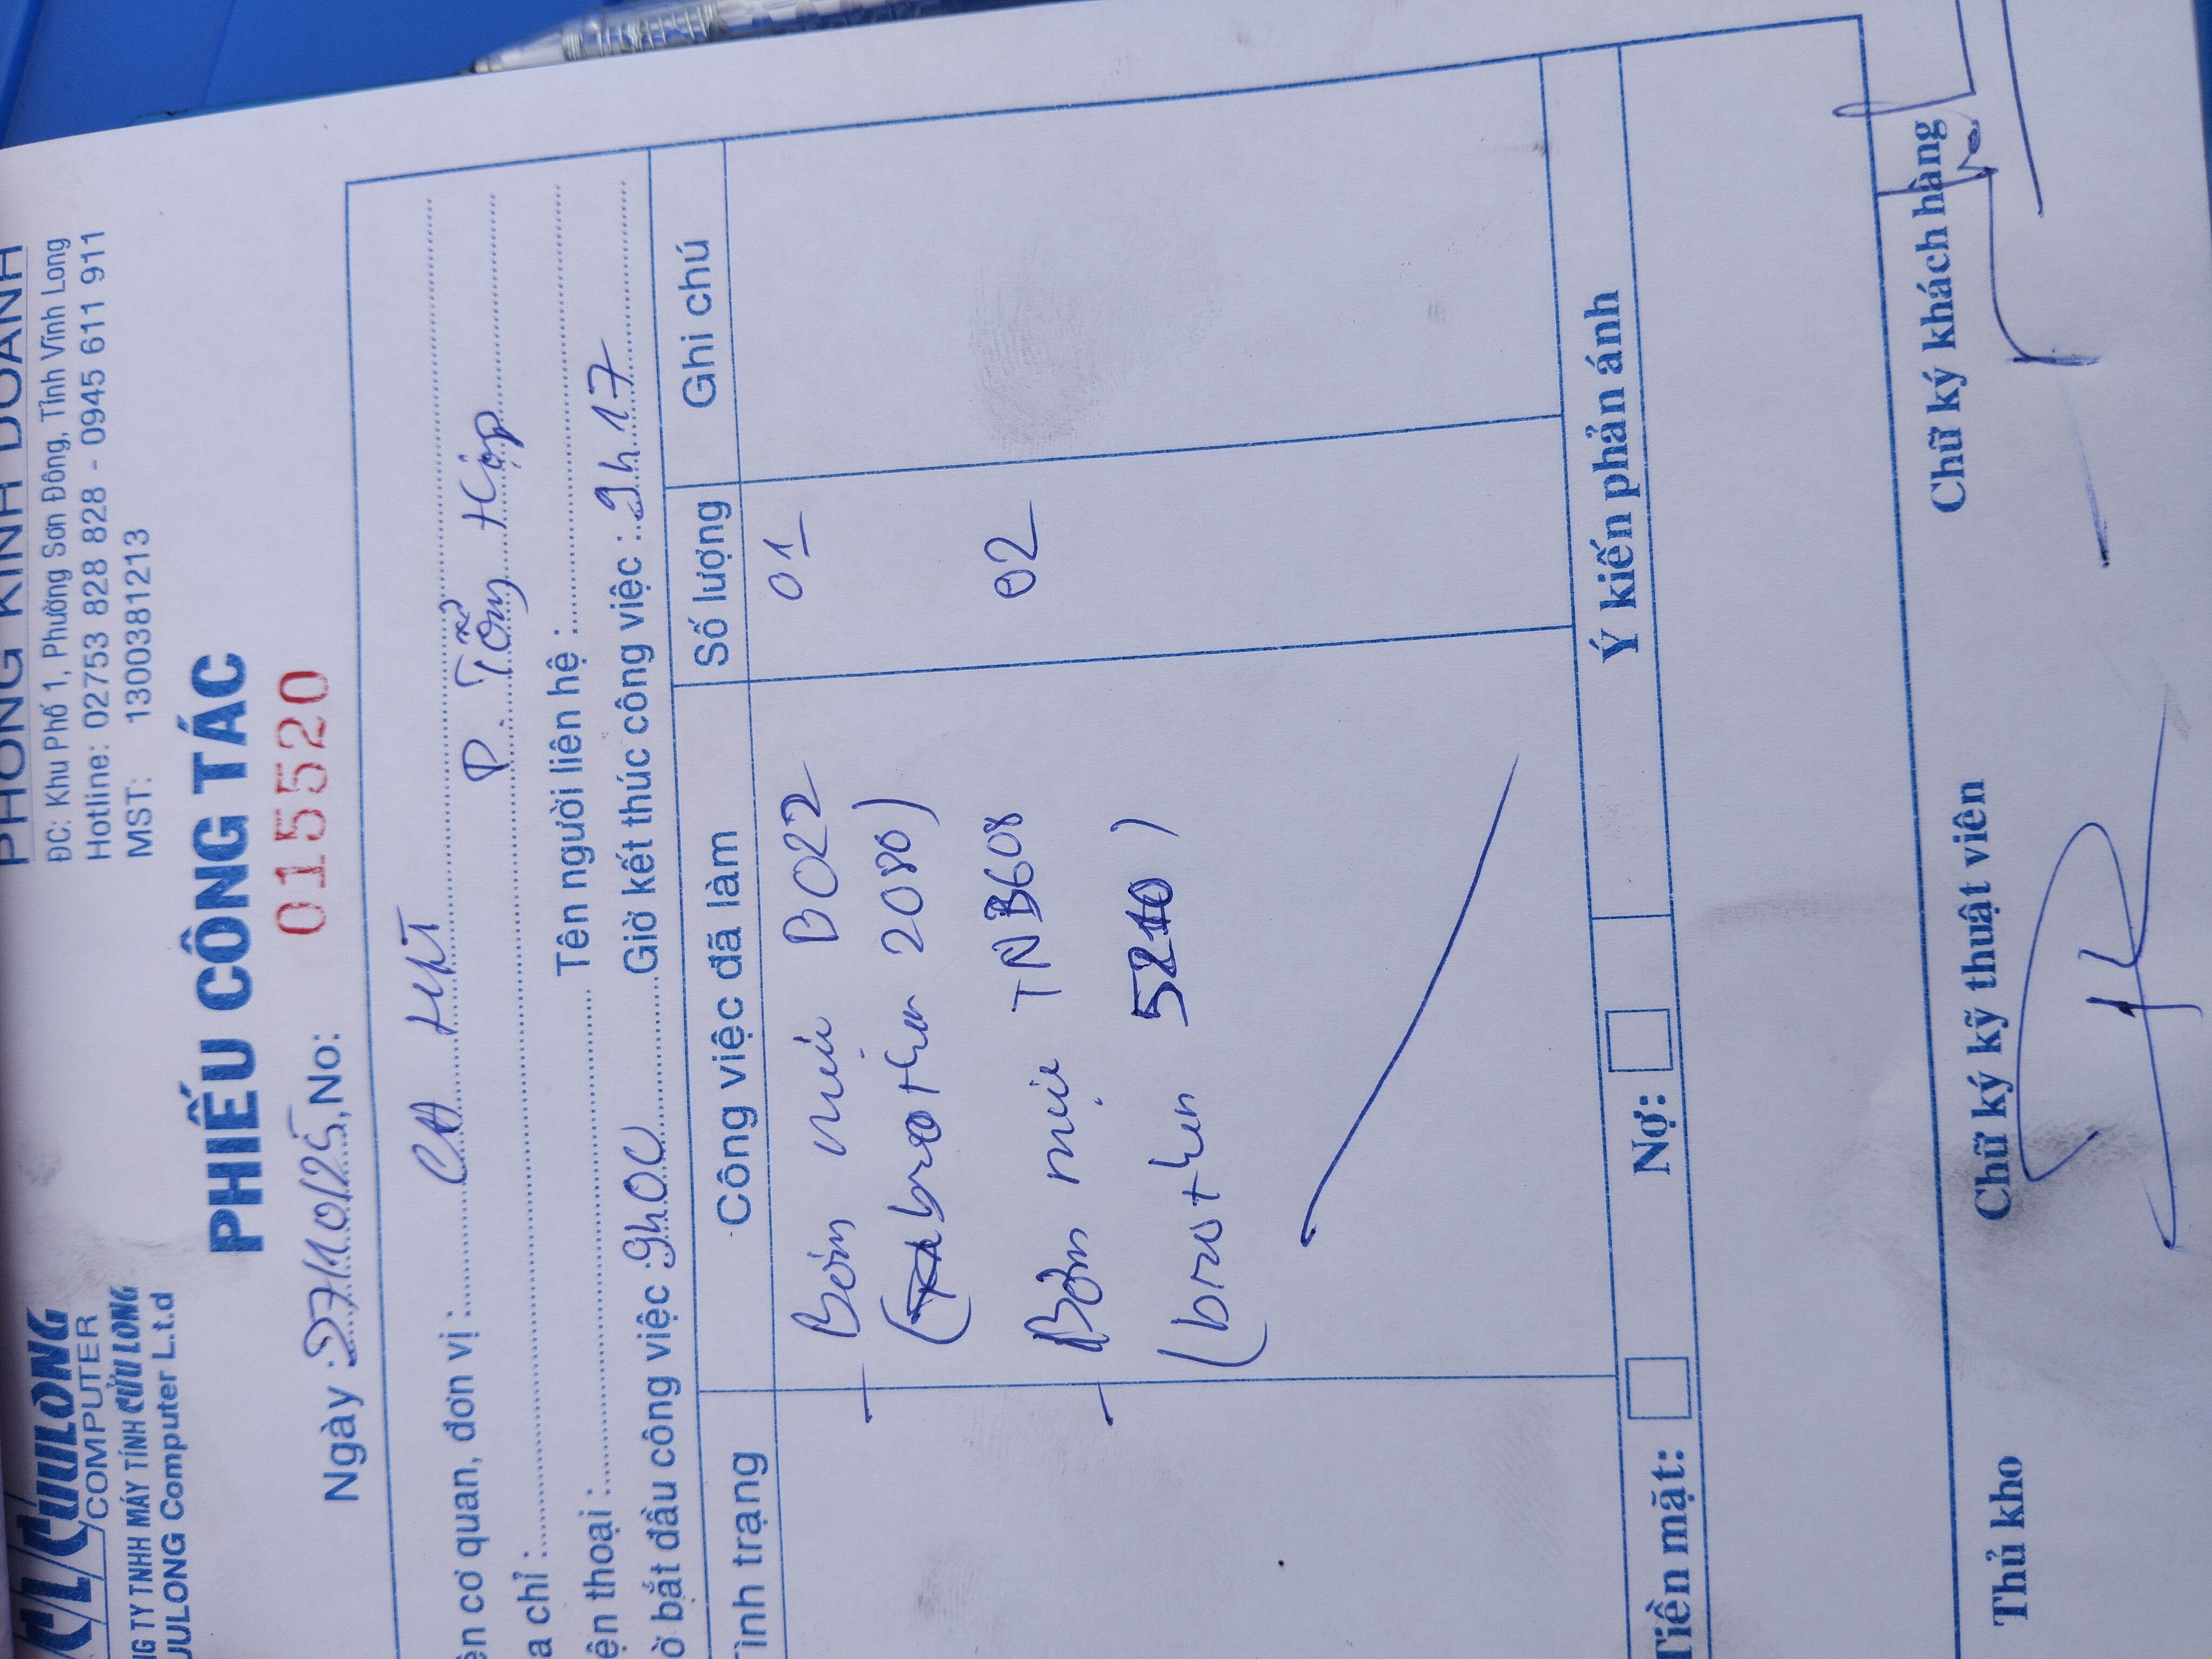 CUULONG
COMPUTER
NG TY TNHH MÁY TÍNH CỬU LONG
UULONG Computer L.t.d
PHÒNG KINH DOANH
ĐC: Khu Phố 1, Phường Sơn Đông, Tỉnh Vĩnh Long
Hotline: 02753 828 828 - 0945 611 911
MST: 1300381213
PHIẾU CÔNG TÁC
Ngày :27/10/25,No: 015520
ên cơ quan, đơn vị : CA
a chỉ : P. Tổng Hợp
ện thoại : Tên người liên hệ :
ờ bắt đầu công việc :9h00 Giờ kết thúc công việc : 9h17
Tình trạng Công việc đã làm Số lượng Ghi chú
- Bơm mực B022 01
(brother 2080)
- Bơm mực TNB608 02
(brother 5210)
Tiền mặt: Nợ: Ý kiến phản ánh
Thủ kho Chữ ký kỹ thuật viên Chữ ký khách hàng